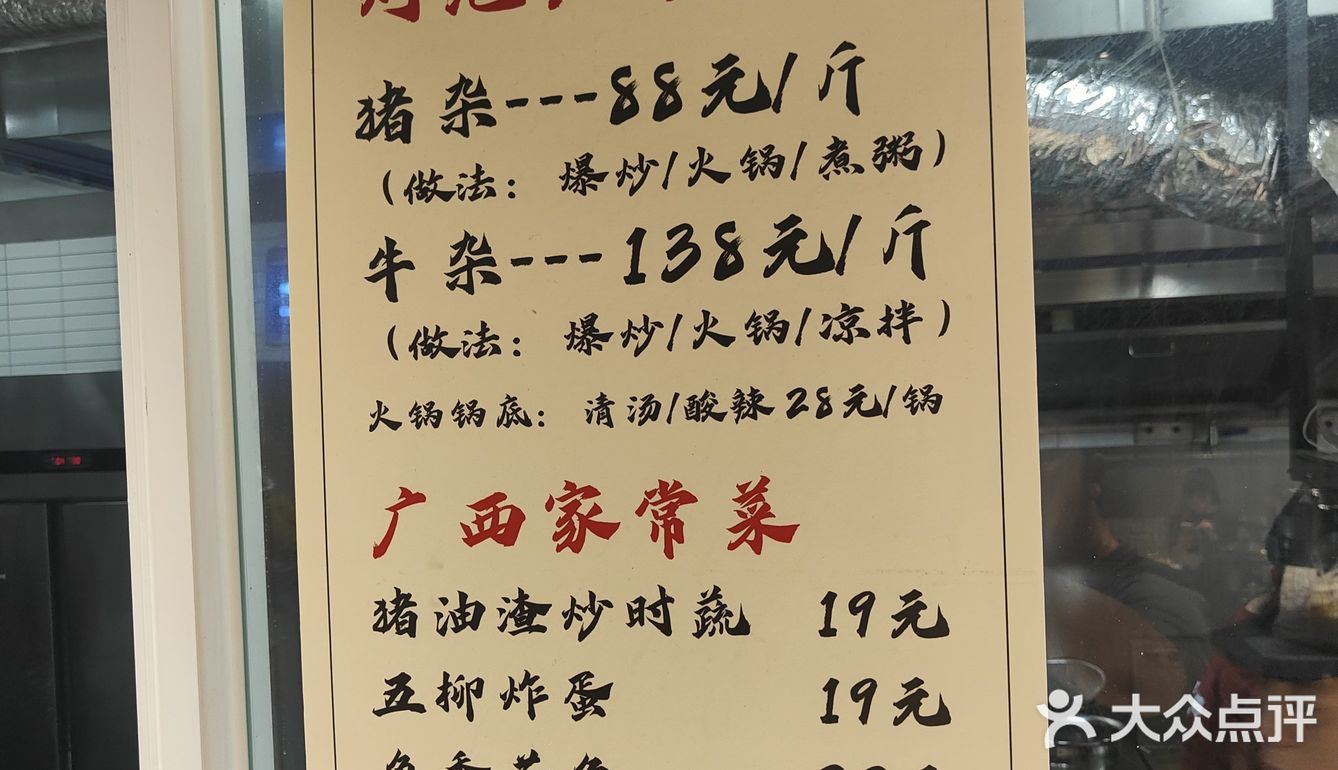 猪杂---88元/斤
(做法： 爆炒/火锅/煮粥)
牛杂---138元/斤
(做法： 爆炒/火锅/凉拌)
火锅锅底： 清汤/酸辣28元/锅
广西家常菜
猪油渣炒时蔬 19元
五柳炸蛋 19元
大众点评